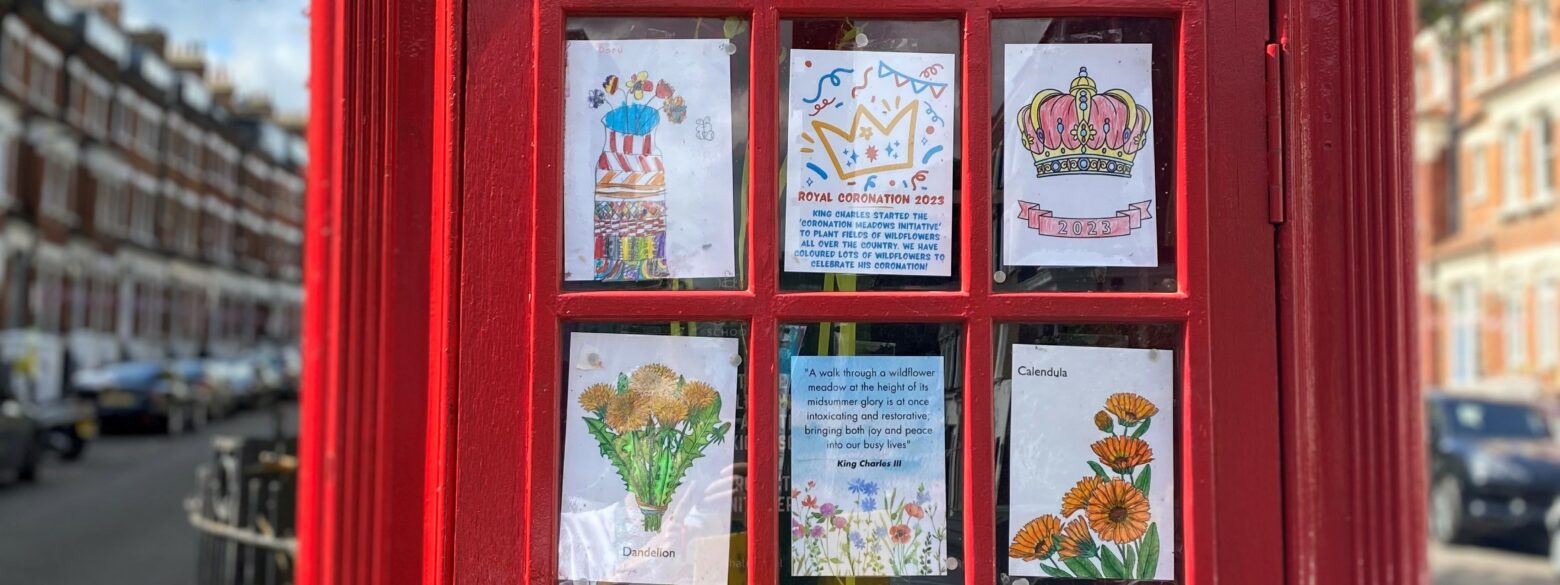 Doru
ROYAL CORONATION 2023
KING CHARLES STARTED THE
'CORONATION MEADOWS INITIATIVE'
TO PLANT FIELDS OF WILDFLOWERS
ALL OVER THE COUNTRY. WE HAVE
COLOURED LOTS OF WILDFLOWERS TO
CELEBRATE HIS CORONATION!
2023
Dandelion
SCHOO
"A walk through a wildflower
meadow at the height of its
midsummer glory is at once
intoxicating and restorative,
bringing both joy and peace
into our busy lives"
King Charles III
Calendula